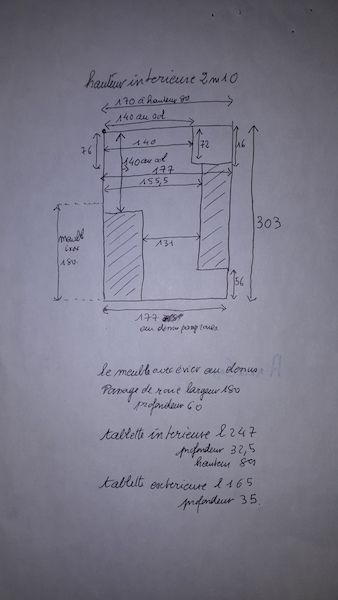 hauteur interieure 2m10
170 à hauteur 80
140 au sol
76
140
72
16
140 au sol
177
155,5
meuble
180
131
303
56
177
au dessus
le meuble avec evier au dessus
Passage de roue largeur 180
profondeur 60
tablette interieure l 247
profondeur 32,5
hauteur
tablette exterieure l 165
profondeur 35.